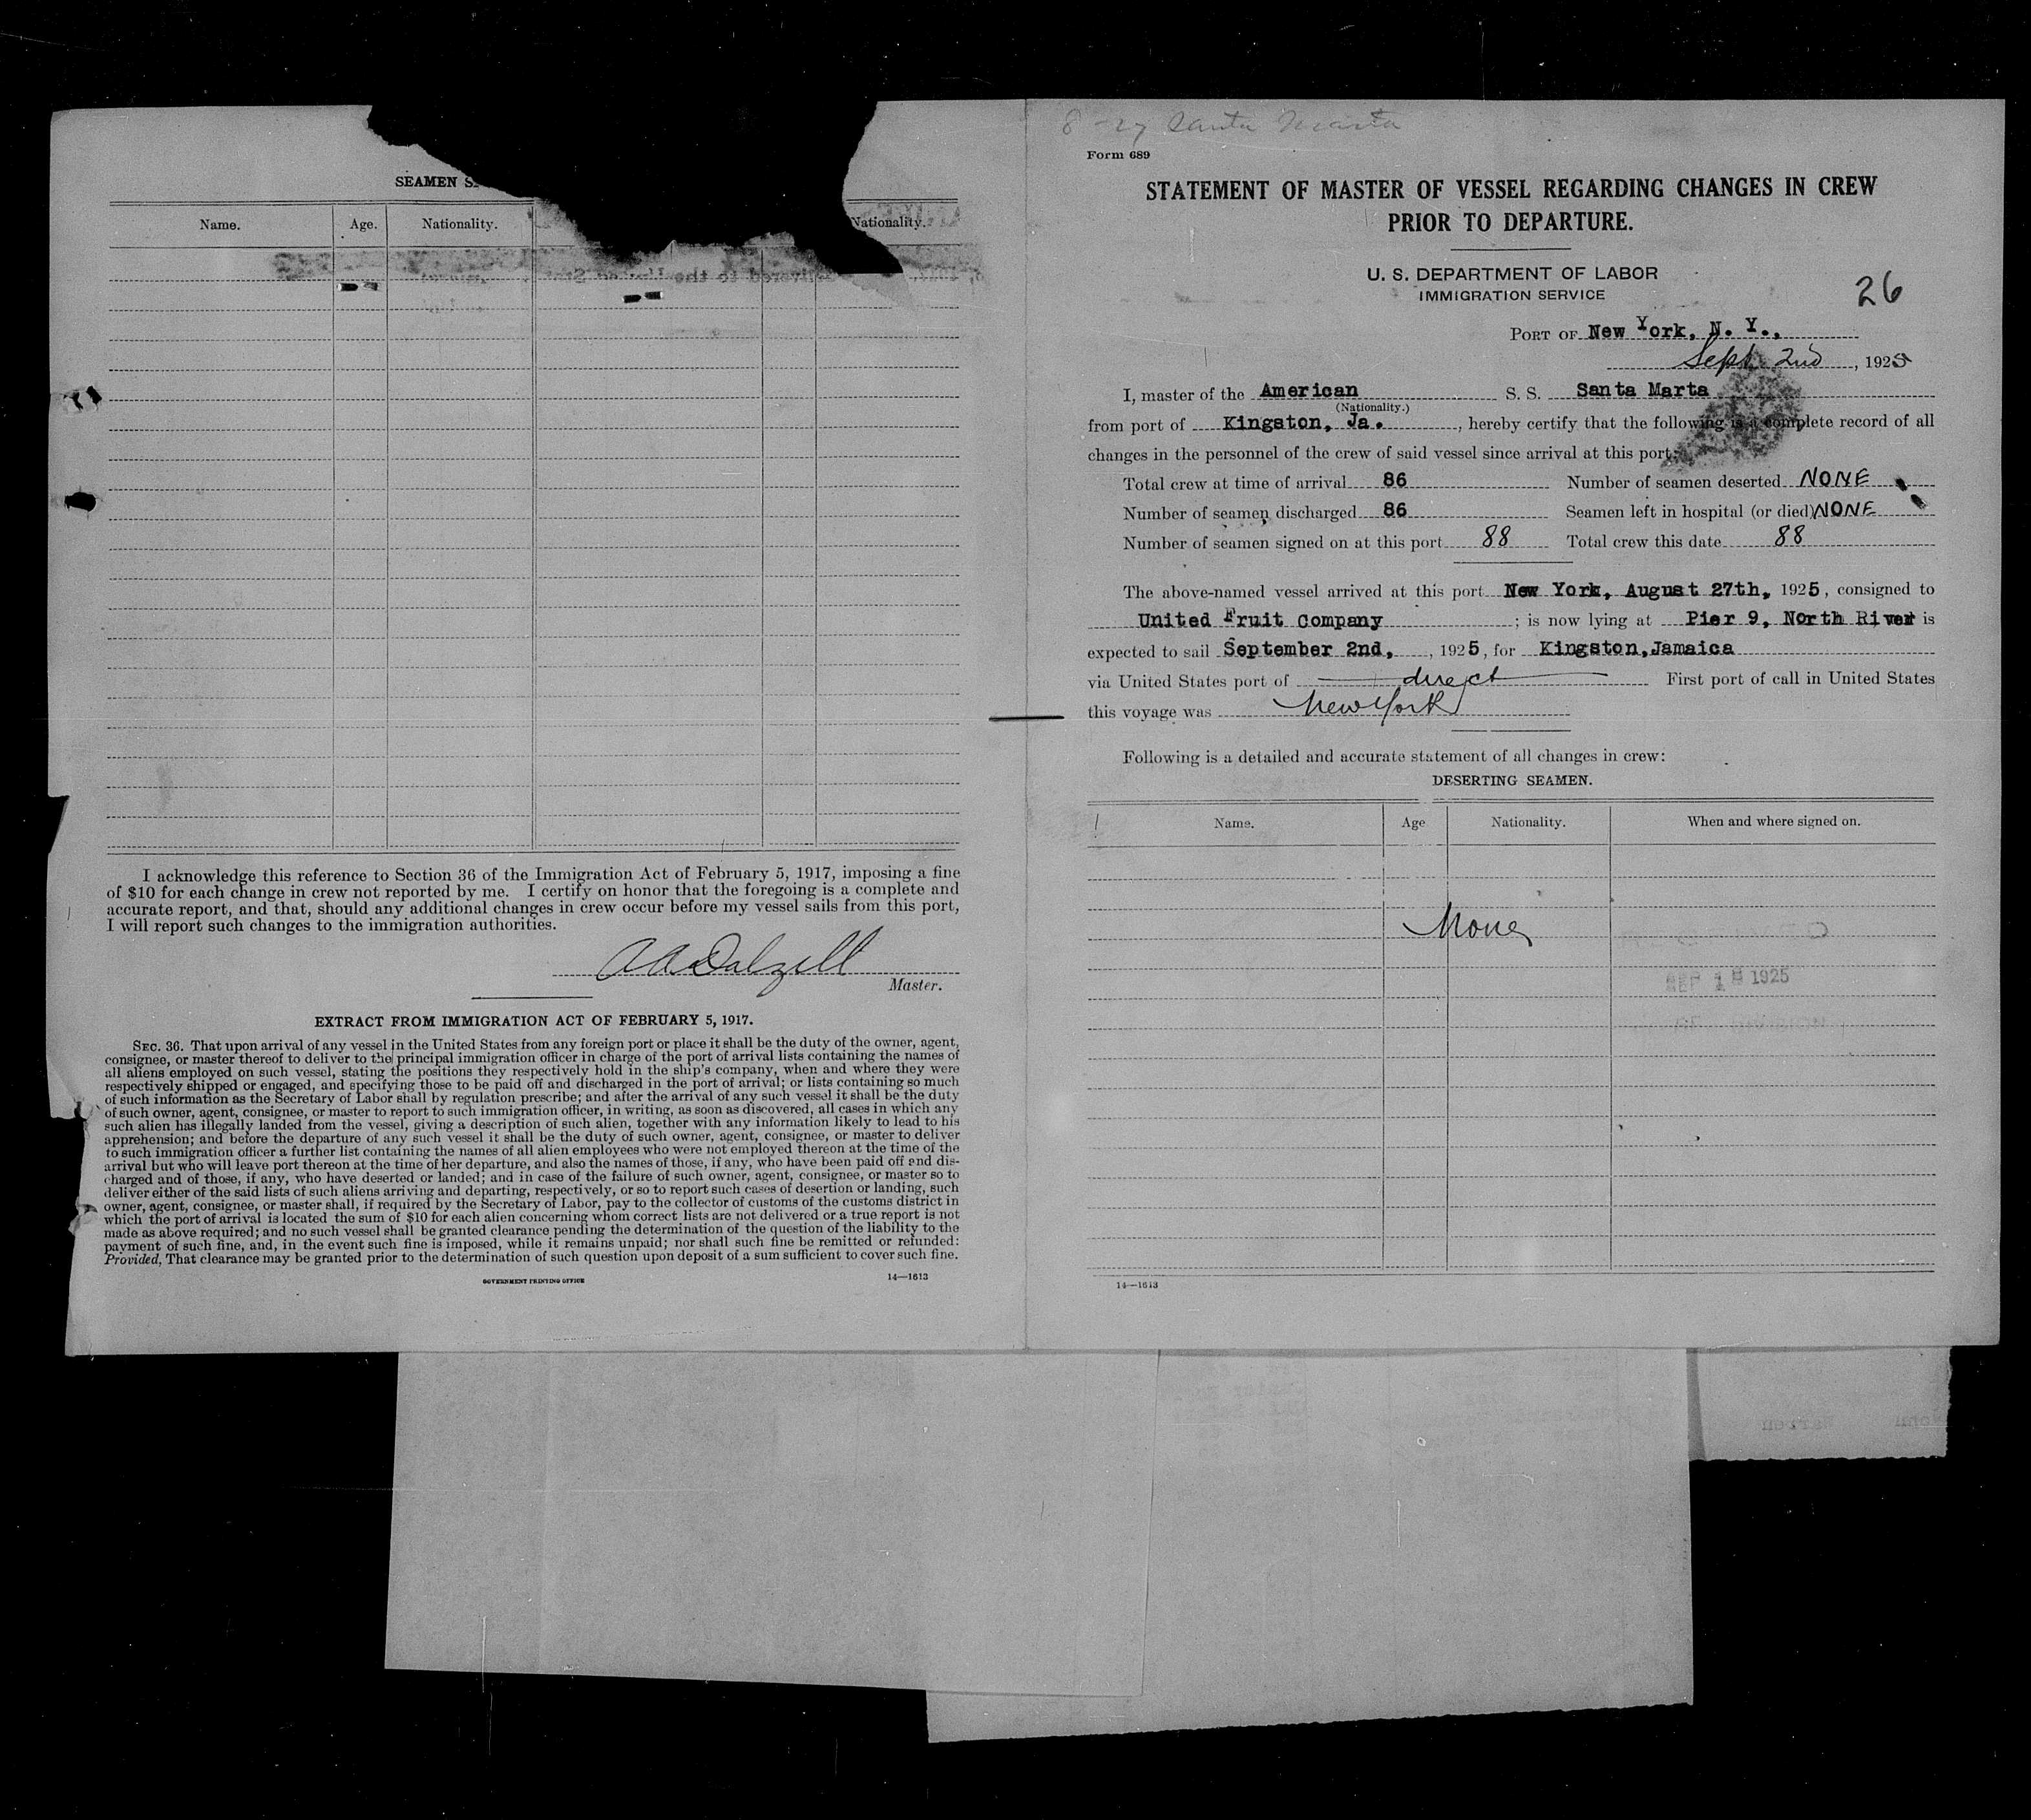 SEAMEN S
Name. Age. Nationality. Nationality.
I acknowledge this reference to Section 36 of the Immigration Act of February 5, 1917, imposing a fine
of $10 for each change in crew not reported by me. I certify on honor that the foregoing is a complete and
accurate report, and that, should any additional changes in crew occur before my vessel sails from this port,
I will report such changes to the immigration authorities.
A A Dalzell
Master.
EXTRACT FROM IMMIGRATION ACT OF FEBRUARY 5, 1917.
SEC. 36. That upon arrival of any vessel in the United States from any foreign port or place it shall be the duty of the owner, agent,
consignee, or master thereof to deliver to the principal immigration officer in charge of the port of arrival lists containing the names of
all aliens employed on such vessel, stating the positions they respectively hold in the ship's company, when and where they were
respectively shipped or engaged, and specifying those to be paid off and discharged in the port of arrival; or lists containing so much
of such information as the Secretary of Labor shall by regulation prescribe; and after the arrival of any such vessel it shall be the duty
of such owner, agent, consignee, or master to report to such immigration officer, in writing, as soon as discovered, all cases in which any
such alien has illegally landed from the vessel, giving a description of such alien, together with any information likely to lead to his
apprehension; and before the departure of any such vessel it shall be the duty of such owner, agent, consignee, or master to deliver
to such immigration officer a further list containing the names of all alien employees who were not employed thereon at the time of the
arrival but who will leave port thereon at the time of her departure, and also the names of those, if any, who have been paid off and dis-
charged and of those, if any, who have deserted or landed; and in case of the failure of such owner, agent, consignee, or master so to
deliver either of the said lists of such aliens arriving and departing, respectively, or so to report such cases of desertion or landing, such
owner, agent, consignee, or master shall, if required by the Secretary of Labor, pay to the collector of customs of the customs district in
which the port of arrival is located the sum of $10 for each alien concerning whom correct lists are not delivered or a true report is not
made as above required; and no such vessel shall be granted clearance pending the determination of the question of the liability to the
payment of such fine, and, in the event such fine is imposed, while it remains unpaid; nor shall such fine be remitted or refunded:
Provided, That clearance may be granted prior to the determination of such question upon deposit of a sum sufficient to cover such fine.
GOVERNMENT PRINTING OFFICE 14—1613
8-27 Santa Marta
Form 689
STATEMENT OF MASTER OF VESSEL REGARDING CHANGES IN CREW
PRIOR TO DEPARTURE.
U. S. DEPARTMENT OF LABOR
IMMIGRATION SERVICE
26
PORT OF New York, N. Y.,
Sept 2nd, 1925
I, master of the American S. S. Santa Marta
(Nationality.)
from port of Kingston, Ja. , hereby certify that the following is a complete record of all
changes in the personnel of the crew of said vessel since arrival at this port:
Total crew at time of arrival 86 Number of seamen deserted NONE
Number of seamen discharged 86 Seamen left in hospital (or died) NONE
Number of seamen signed on at this port 88 Total crew this date 88
The above-named vessel arrived at this port New York, August 27th, 1925, consigned to
United Fruit Company ; is now lying at Pier 9, North River is
expected to sail September 2nd, , 1925, for Kingston, Jamaica
via United States port of direct First port of call in United States
this voyage was New York
Following is a detailed and accurate statement of all changes in crew:
DESERTING SEAMEN.
Name. Age Nationality. When and where signed on.
None
SEP 18 1925
14—1613